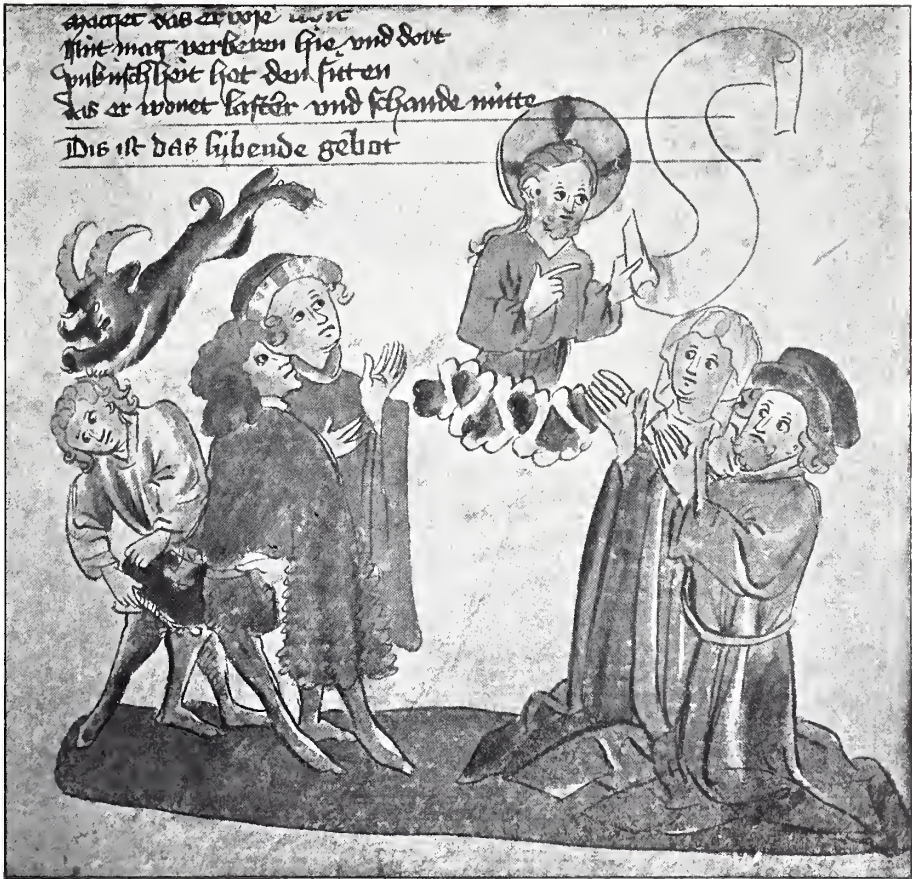 machet das er vose wort
Nit mag verberen hie vnd dort
vnkuschheit hot den sitten
das er wonet laster vnd schande mitte
Dis ist das sybende gebot